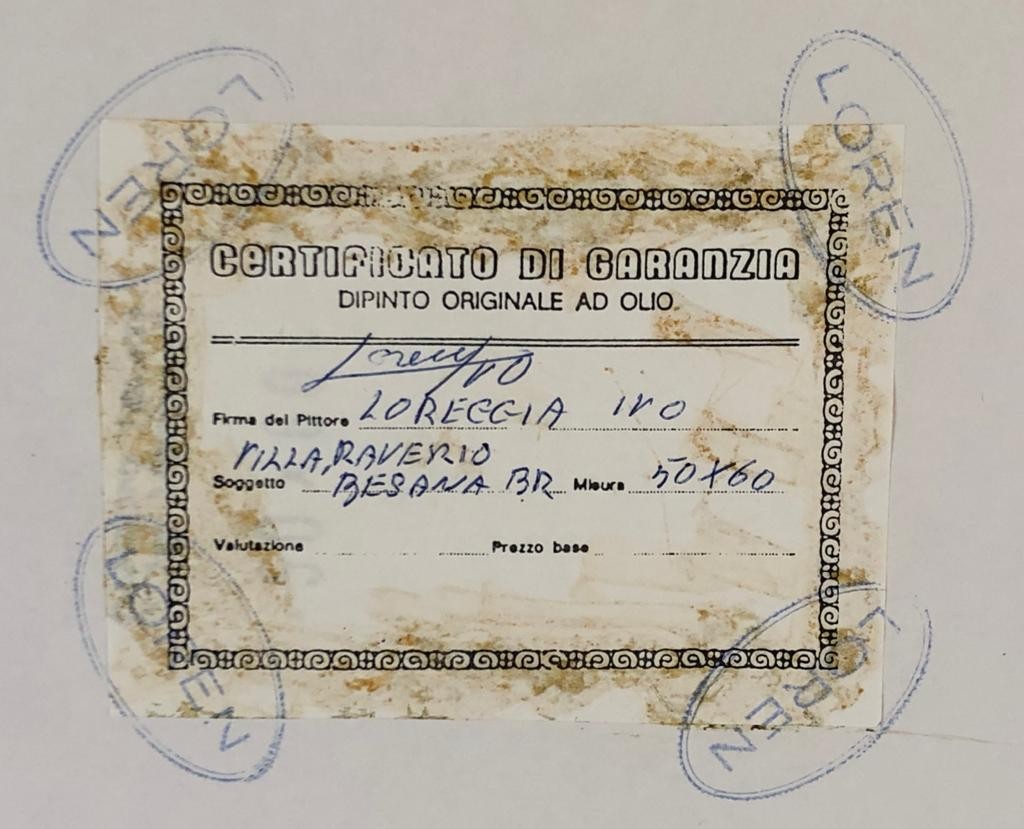 LOREN
LOREN
CERTIFICATO DI GARANZIA
DIPINTO ORIGINALE AD OLIO
Firma del Pittore LOREGGIA IVO
VILLA RAVERIO
Soggetto BESANA BR Misura 50X60
Valutazione Prezzo base
LOREN
LOREN